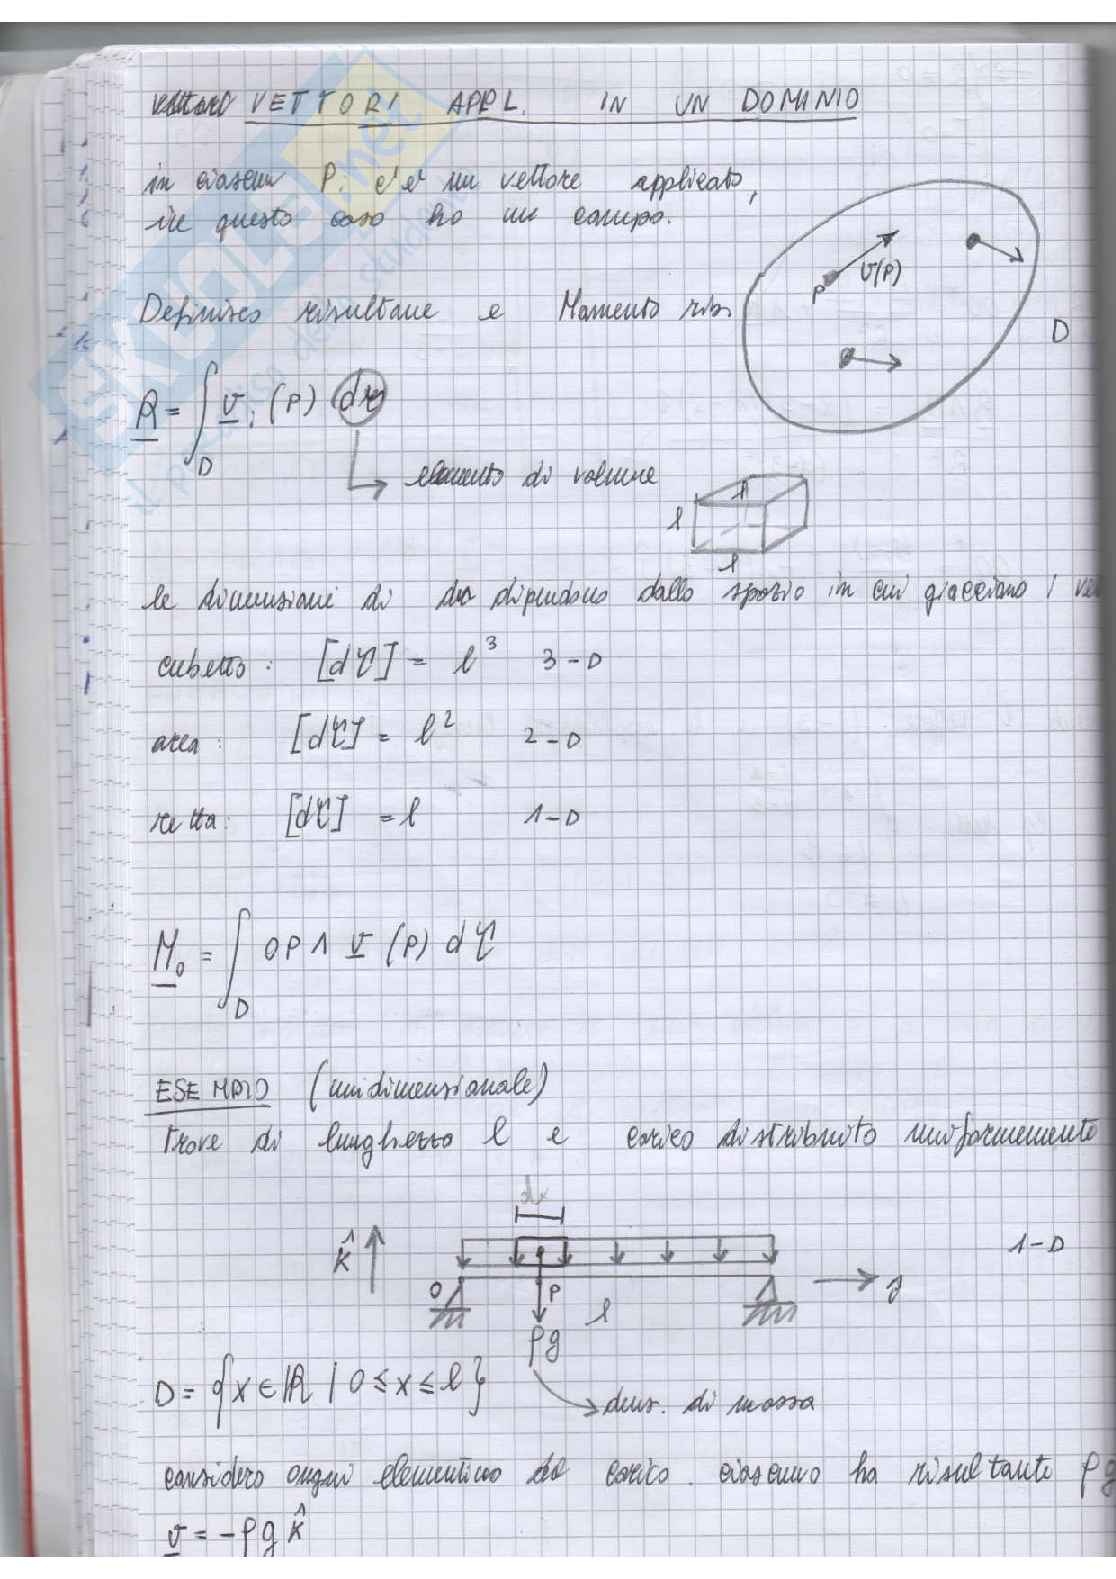 VETTORI APPL. IN UN DOMINIO
in ciascun P. c'è un vettore applicato,
in questo caso ho un campo.
P v(P)
D
Definisco risultane e Momento ris
R = ∫_D v_i (P) dτ
elemento di volume
l l l
le dimensioni di dτ dipendono dallo spazio in cui giacciono i ve
cubetto: [dτ] = l³ 3-D
area: [dτ] = l² 2-D
retta: [dτ] = l 1-D
M_o = ∫_D OP ∧ v (P) dτ
ESEMPIO (unidimensionale)
Trave di lunghezza l e carico distribuito uniformemente
dx
k̂ 1-D
O P l
ρg
D = {x ∈ ℝ | 0 ≤ x ≤ l}
dens. di massa
considero ogni elementino di carico. ciascuno ha risultante ρg
v = -ρg k̂
SKUOLA.net